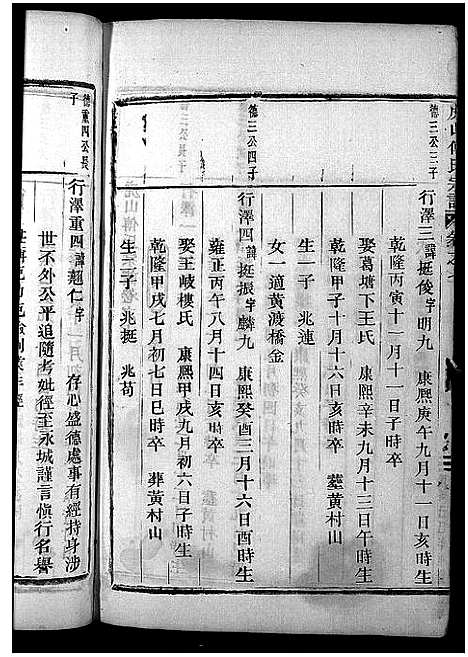 德三公三子
行澤三諱挺俊字明九　康熙庚午九月十一日亥時生
乾隆丙寅十一月十一日子時卒
娶葛塘下王氏　康熙辛未九月十三日午時生
乾隆甲子十月十六日亥時卒　葬黃村山
生一子　兆連
女一適黃渡橋金
德三公四子
行澤四諱挺振字麟九　康熙癸酉三月十六日酉時生
雍正丙午八月十四日亥時卒
娶王岐樓氏　康熙甲戌九月初六日子時生
乾隆甲戌七月初七日巳時卒　葬黃村山
生二子　兆挺　兆荀
德重四公長子
行澤重四諱趐仁字　存心盛德處事有經持身涉
世不外公平追隨考妣徑至永城謹言慎行名譽